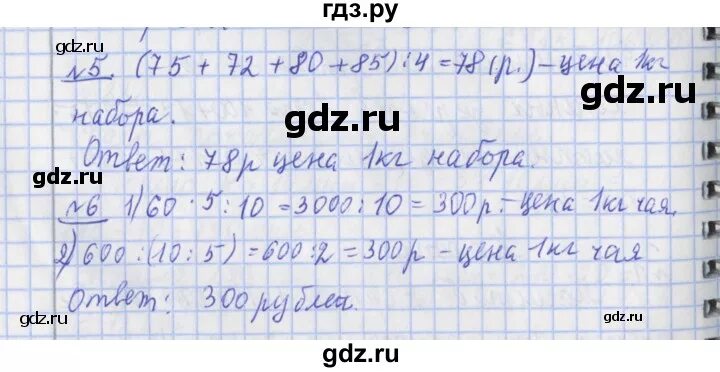 гдз.ру
№5. (75 + 72 + 80 + 85) : 4 = 78 (р.) – цена 1кг
gdz.ru gdz.ru
набора.
gdz.ru
Ответ: 78р цена 1кг набора.
gdz.ru
№6 1) 60 · 5 : 10 = 3000 : 10 = 300р. – цена 1кг чая.
gdz.ru
2) 600 : (10 : 5) = 600 : 2 = 300р – цена 1кг чая
gdz.ru
Ответ: 300 рублей.
gdz.ru gdz.ru
gdz.ru